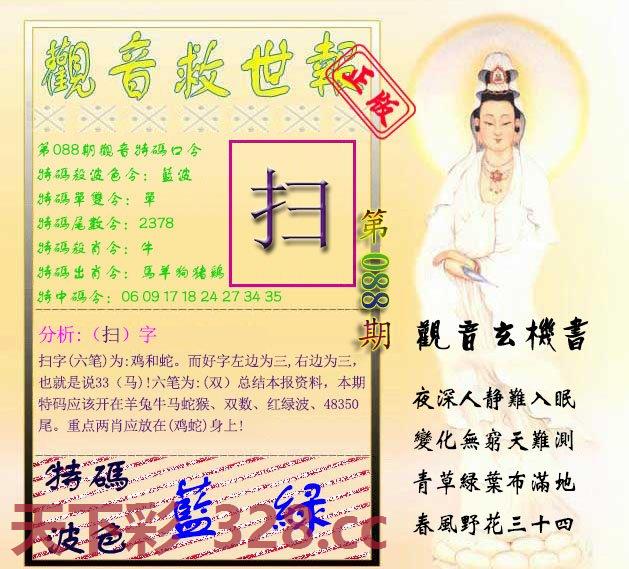 觀音救世報
正版
第088期觀音特碼口令
特碼殺波色令：藍波
特碼單雙令：單
特碼尾數令：2378
特碼殺肖令：牛
特碼出肖令：馬羊狗猪鷄
特中碼令：06 09 17 18 24 27 34 35
扫
第088期
分析:（扫）字
扫字(六笔)为:鸡和蛇。而好字左边为三,右边为三，
也就是说33（马)!六笔为:(双）总结本报资料，本期
特码应该开在羊兔牛马蛇猴、双数、红绿波、48350
尾。重点两肖应放在(鸡蛇)身上!
特碼
波色
藍 綠
天下彩 328.cc
觀音玄機書
夜深人静難入眠
變化無窮天難測
青草綠葉布滿地
春風野花三十四